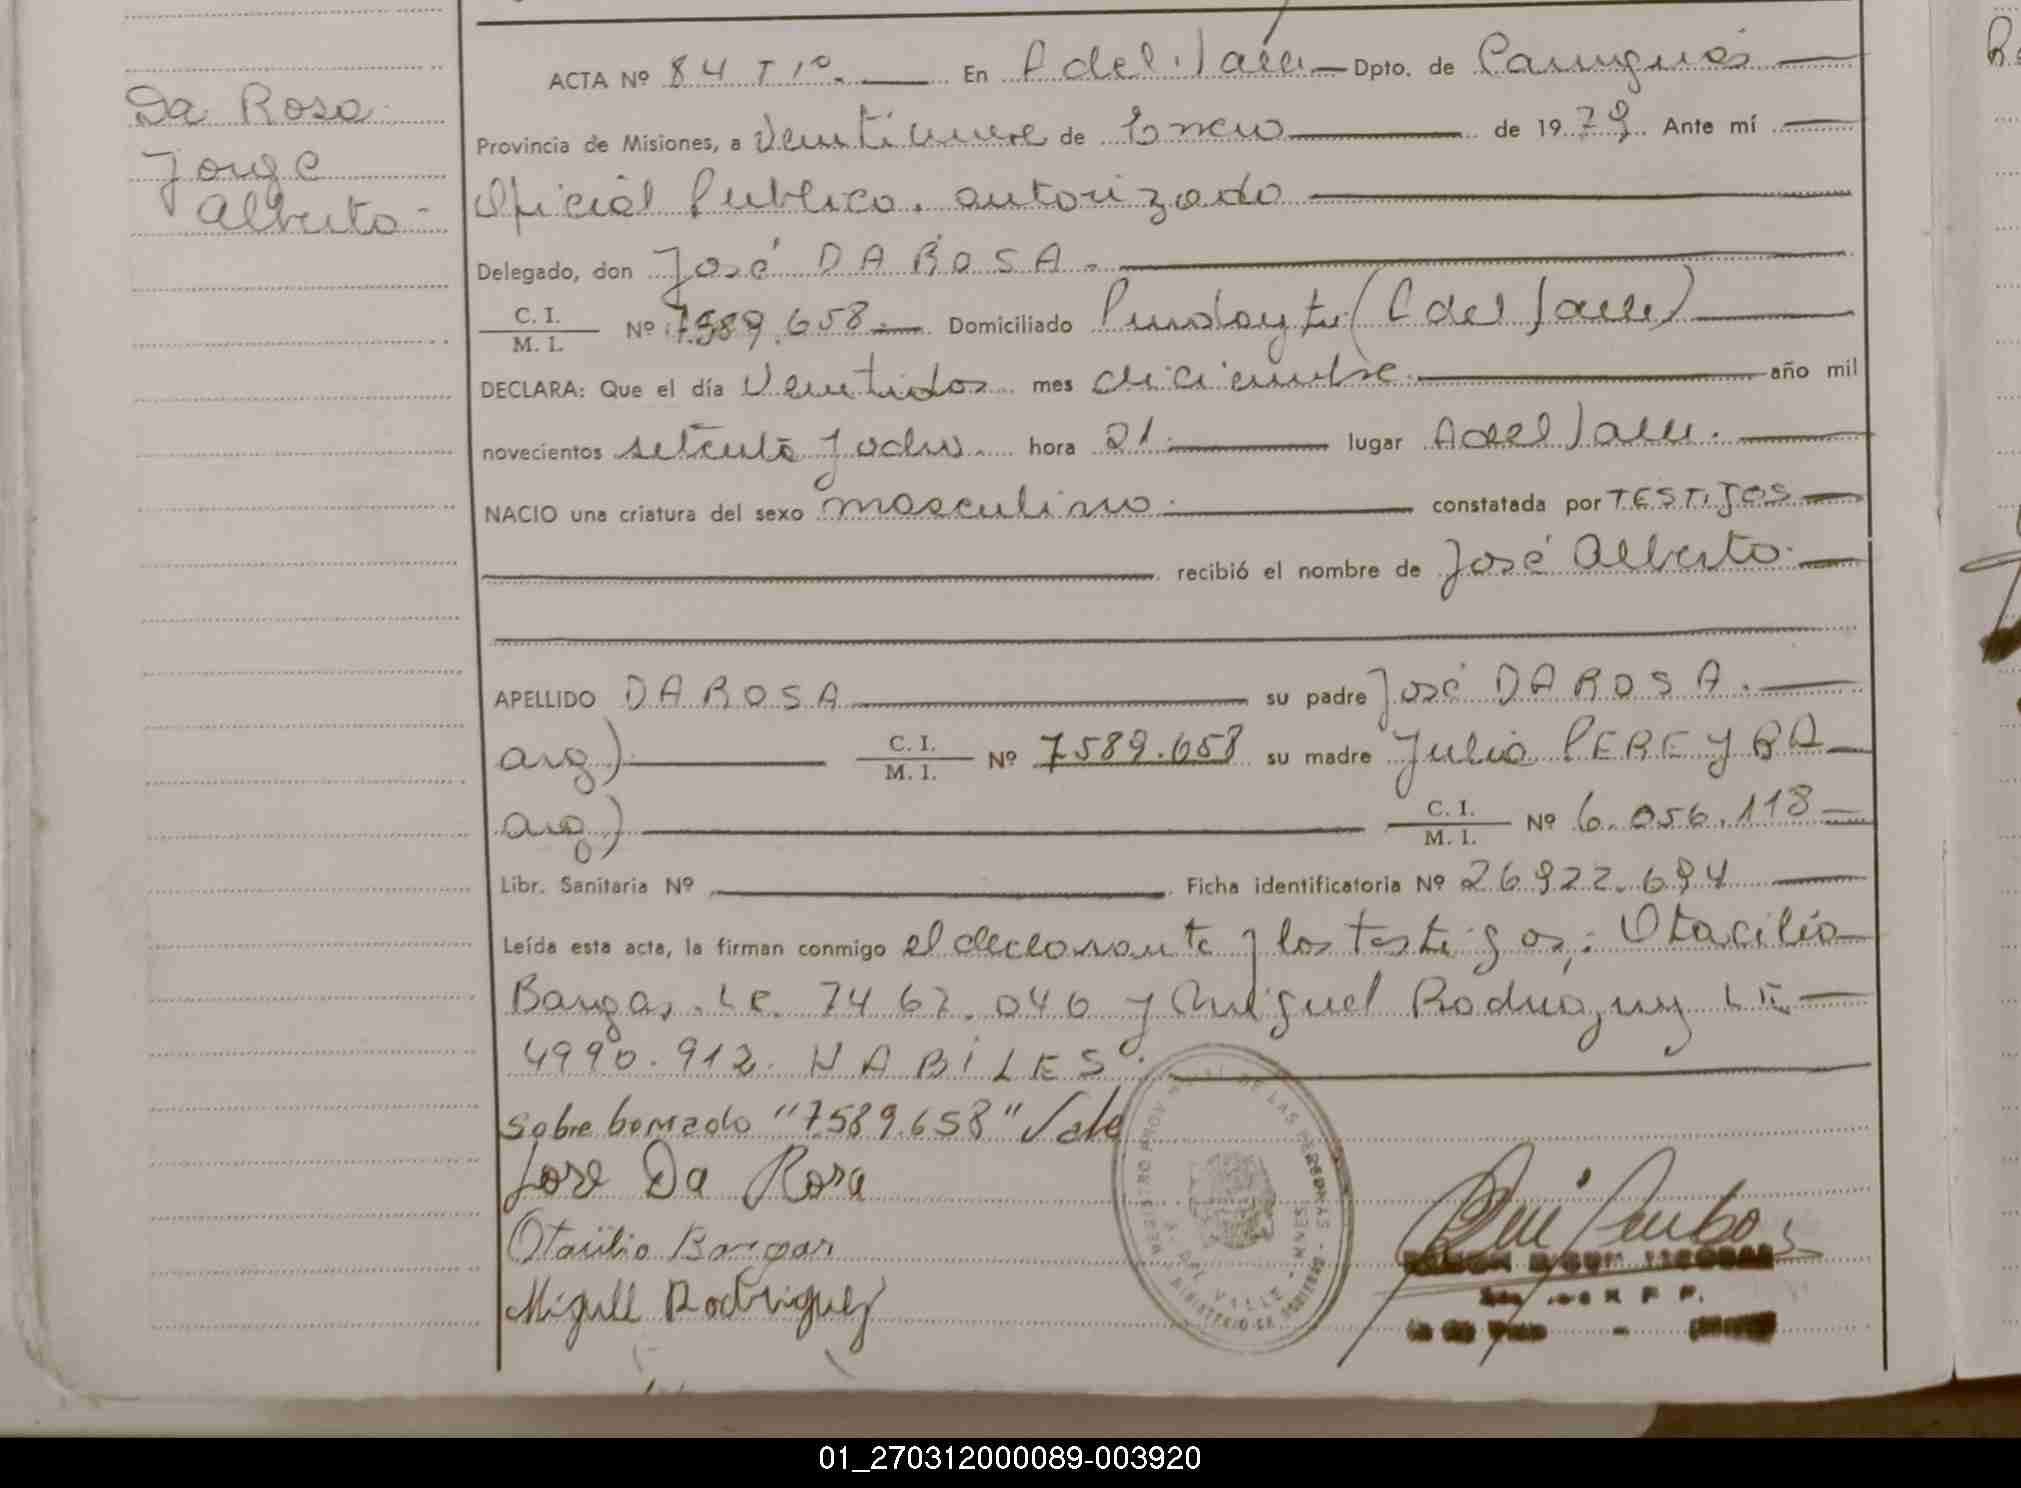 Da Rosa
Jorge
Alberto-
ACTA Nº 84 Tº 1º. En A del Valle Dpto. de Cainguás
Provincia de Misiones, a Veintinueve de Enero de 1979. Ante mí
Oficial Publico. autorizado
Delegado, don José DA ROSA.
C. I.
M. I.
Nº 7589.658. Domiciliado Pindayty (A del Valle)
DECLARA: Que el día Ventidos mes diciembre año mil
novecientos setenta y ocho. hora 21. lugar A del Valle.
NACIO una criatura del sexo masculino. constatada por TESTIGOS
recibió el nombre de José Alberto.
APELLIDO DA ROSA su padre José DA ROSA.
arg) C. I.
M. I.
Nº 7589.658 su madre Julia PEREYRA
arg) C. I.
M. I.
Nº 6.056.118
Libr. Sanitaria Nº Ficha identificatoria Nº 26922.694
Leída esta acta, la firman conmigo el declarante y los testigos: Otacilio
Bargas. LE. 7467.040 y Miguel Rodriguez LE
4990.912. HABILES.
sobre borrado "7589.658" Vale
Jose Da Rosa
Otacilio Bargas
Miguel Rodriguez
REGISTRO PROVINCIAL DE LAS PERSONAS
A. DEL VALLE - MNES.
MINISTERIO DE GOBIERNO
01_270312000089-003920